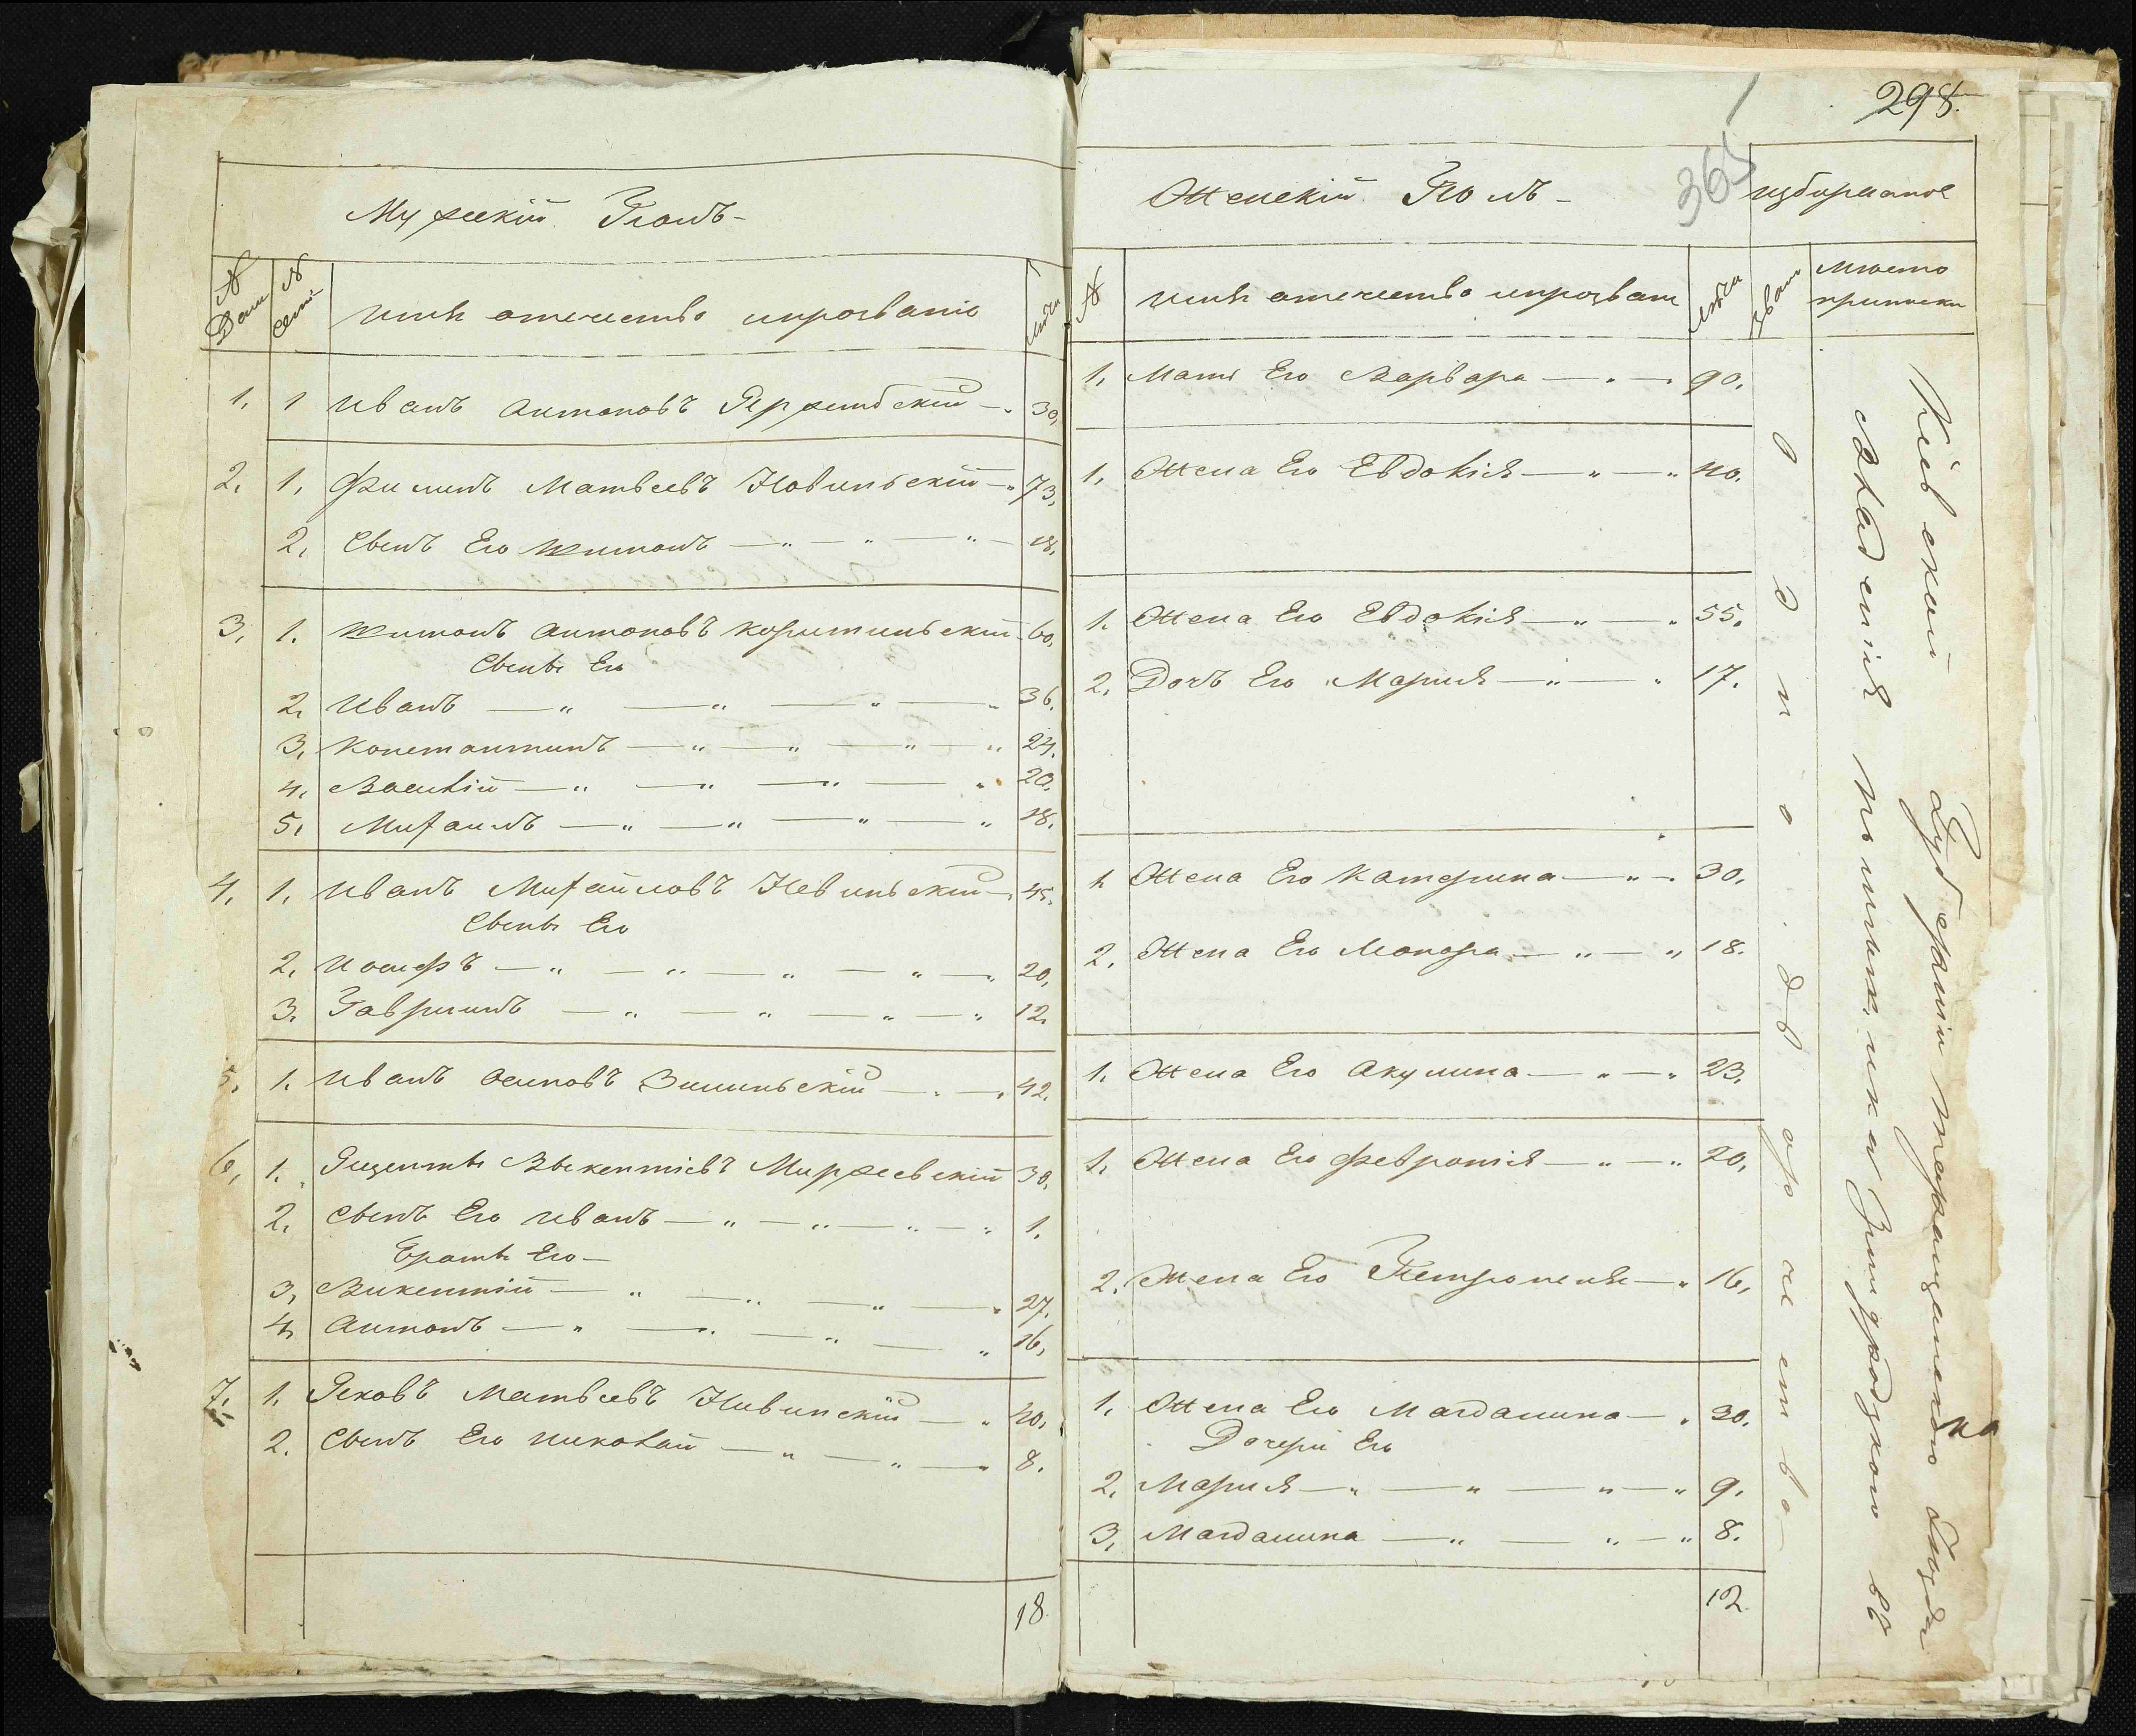 Мужескій Полъ -
N Дом.
N Сем.
имя отечество ипрозваніе
лѣта
1. 1 Иванъ Антоновъ 30,
2. 1, Филипъ Матвеевъ Новиньскій — " 73,
2, Сынъ Его Антонъ — " — " — " — 18,
3, 1. Антонъ Антоновъ Коритиньскій 60,
Сыны Его
2, Иванъ — " — " — " — " 36.
3, Константинъ — " — " — " — " 24.
4, Василій — " — " — " — " 20,
5, Михаилъ — " — " — " — " 18.
4, 1, Иванъ Михайловъ Невиньскій — 45.
Сыны Его
2, Иосифъ — " — " — " — " — " 20,
3. Гаврыилъ — " — " — " — " 12.
5, 1. Иванъ Осиповъ Зилиньскій — . — . 42.
6, 1. Викентіевъ Миржеевскій 30,
2. Сынъ Его Иванъ — " — " — " — " 1.
Браты Его —
3, Викентій — " — " — " — " 27.
4, Антонъ — " — " — " — " 16,
7. 1. Яковъ Матвеевъ Нивинскій — . 40,
2. Сынъ Его Николай — " — " — " 8.
18.
298.
365
Женскій Полъ -
избираемое
N
имя отечество ипрозваніе
лѣта
званіе
мѣсто приписки
1, Мать Его Варвара — . — . 90.
1, Жена Его Евдокія — " — " 40.
1. Жена Его Евдокія — " — " 55.
2, Дочъ Его Марыя — " — " 17.
1. Жена Его Катерина — " — . 30.
2, Жена Его — " — " 18.
1. Жена Его Акулина — " — " 23.
1, Жена Его Февронія — " — " 20,
2. Жена Его Петронеля — " 16,
1, Жена Его Магдалина — . 30.
Дочери Его
2, Марыя — " — " — " — " 9.
3, Магдалина — " — " — " 8.
12
однодворчество
Кіевской Губерніи Таращанского Уѣзда
на
владенія помѣщика въ